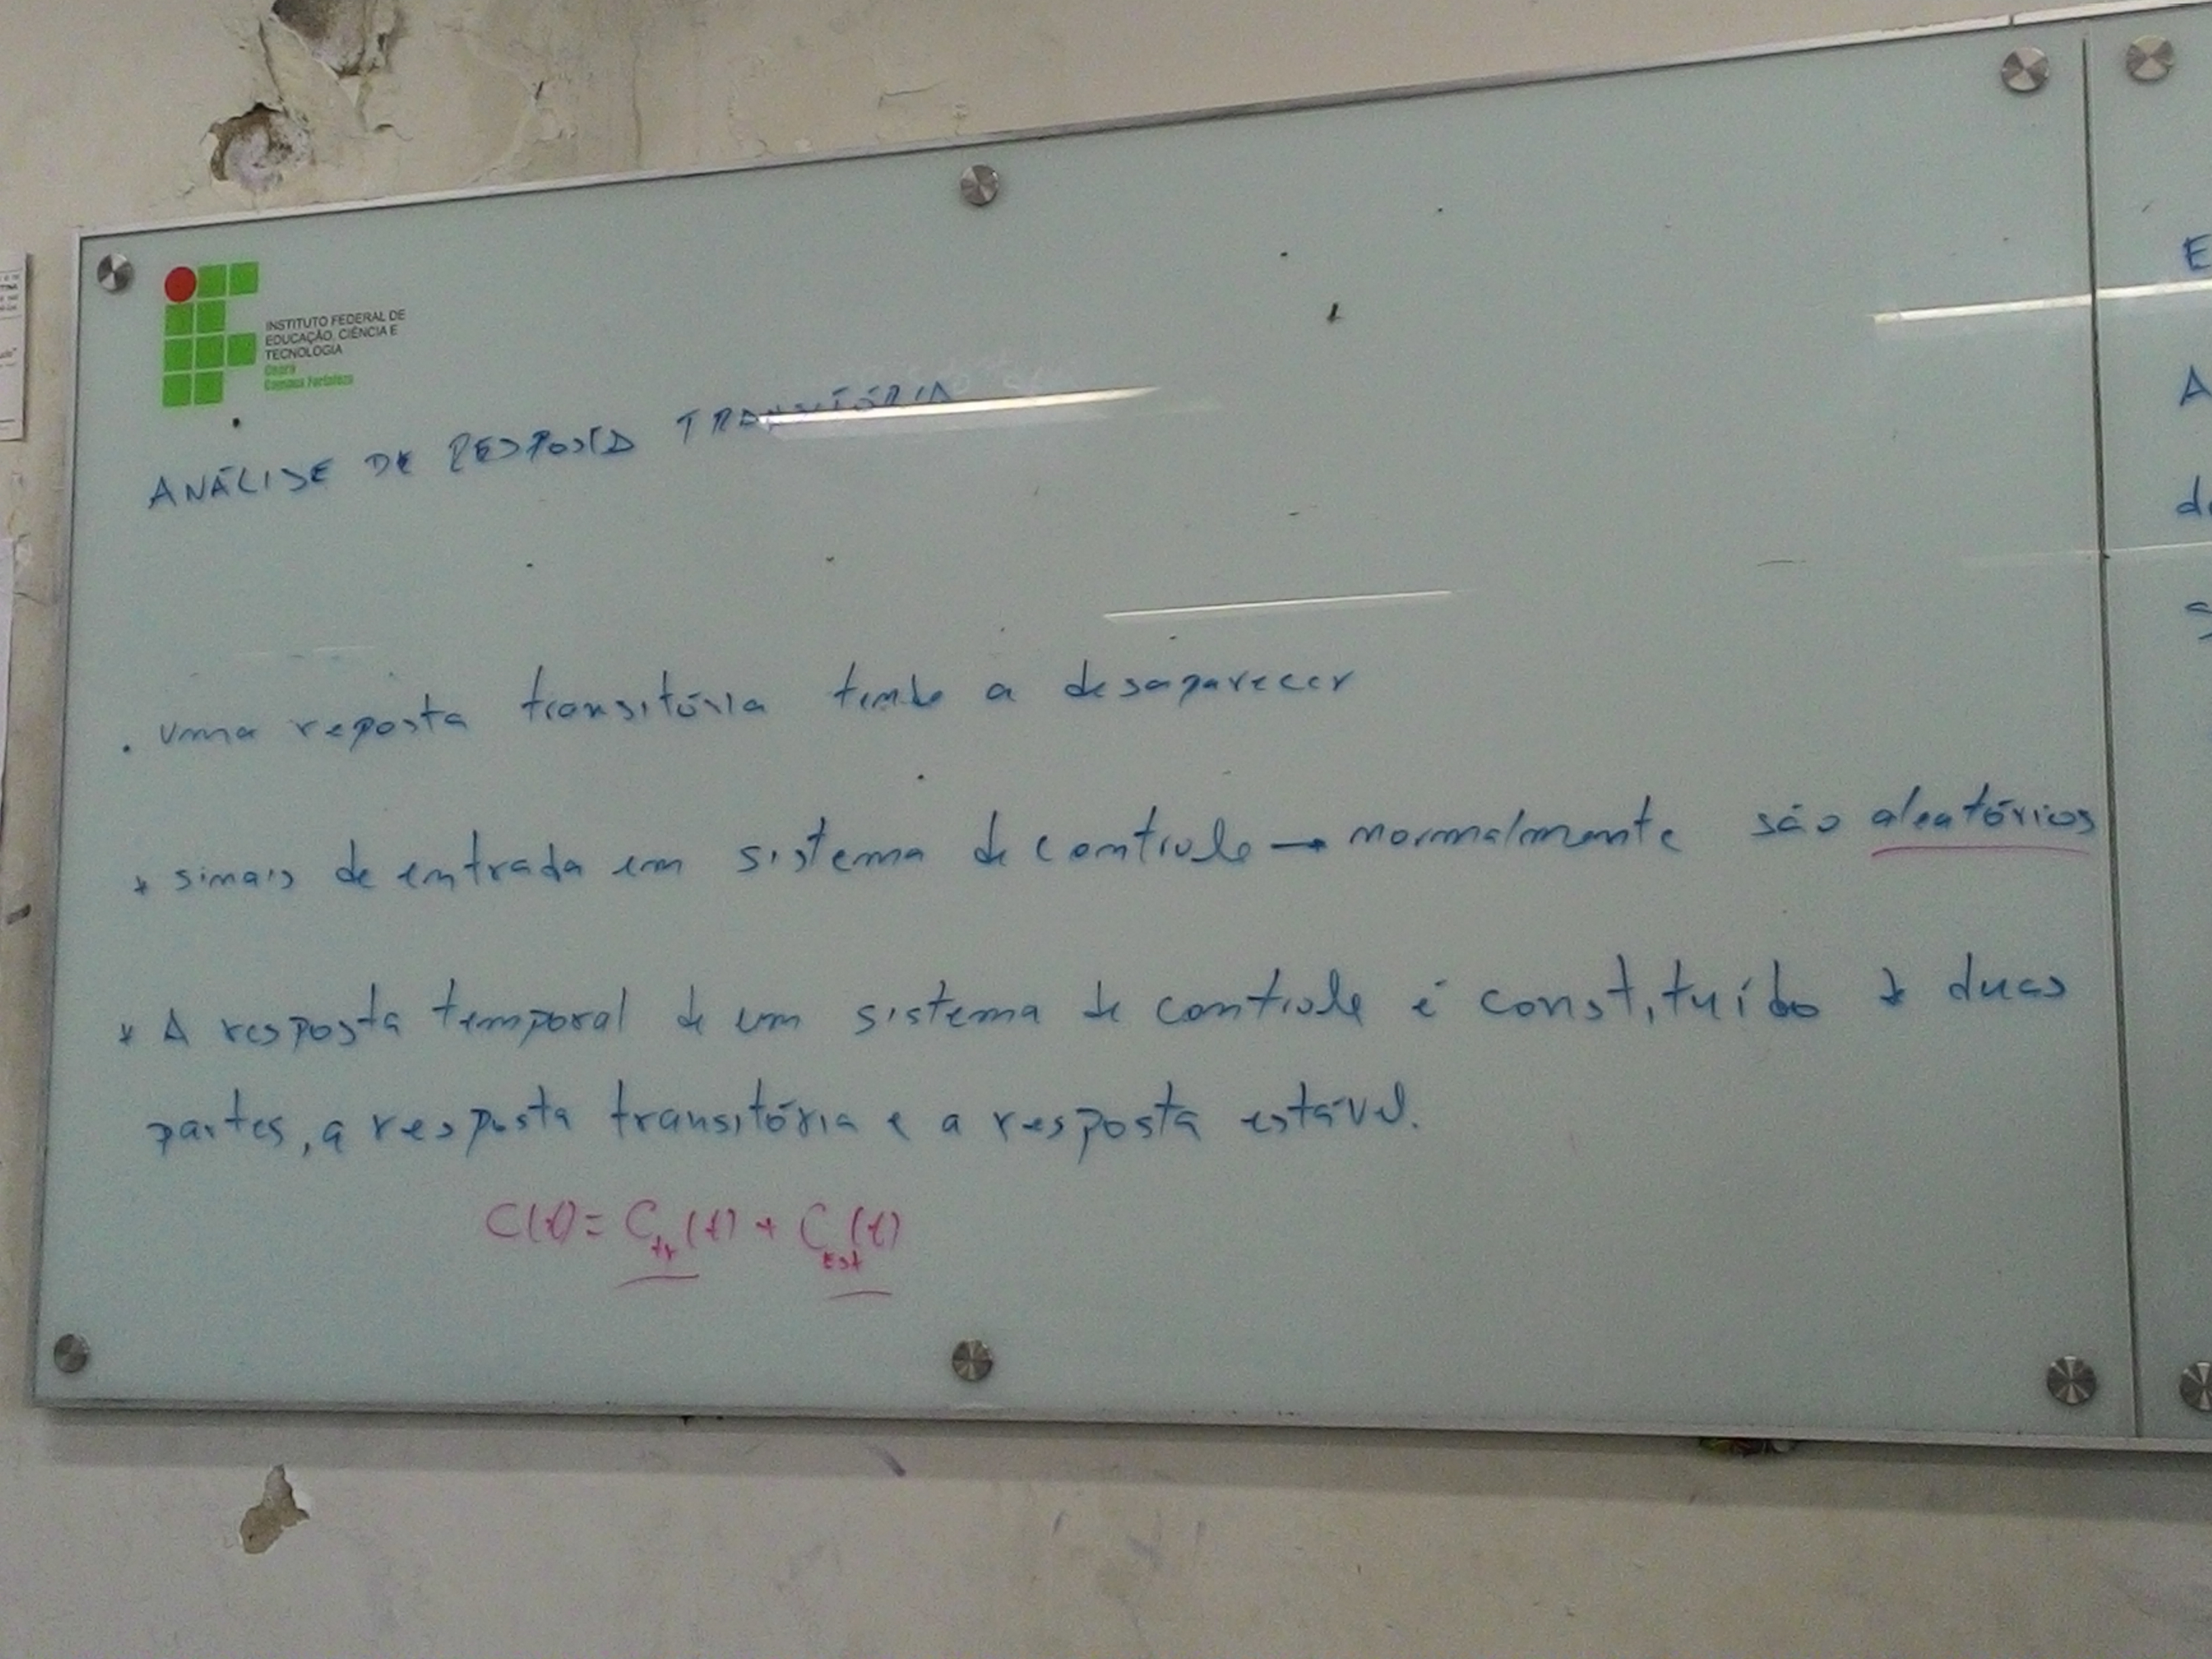 INSTITUTO FEDERAL DE
EDUCAÇÃO, CIÊNCIA E
TECNOLOGIA
Ceará
Campus Fortaleza
ANÁLISE DE RESPOSTA TRANSITÓRIA
. uma reposta transitória tende a desaparecer
* sinais de entrada em sistema de controle → normalmente são aleatórios
* A resposta temporal de um sistema de controle é constituído de duas
partes, a resposta transitória e a resposta estável.
C(t) = C_tr(t) + C_Est(t)
E
A